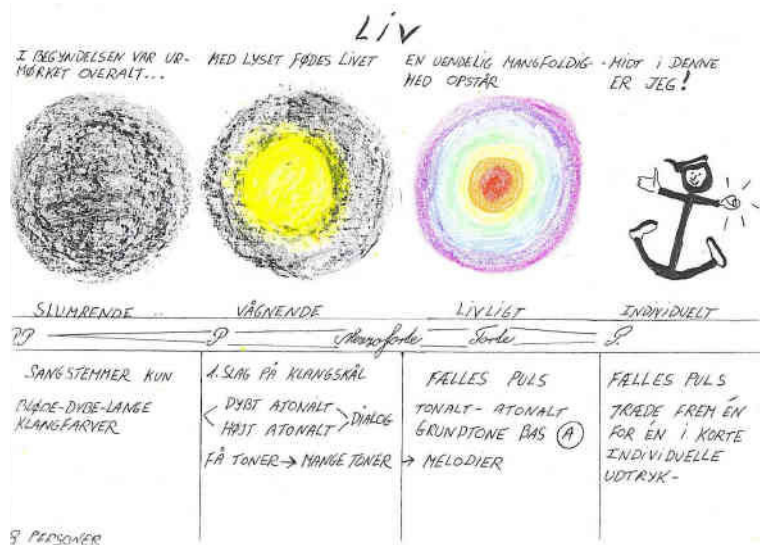 LIV
I BEGYNDELSEN VAR UR-
MØRKET OVERALT...
MED LYSET FØDES LIVET
EN UENDELIG MANGFOLDIG-
HED OPSTÅR
- MIDT I DENNE
ER JEG!
SLUMRENDE ..
VÅGNENDE
LIVLIGT
INDIVIDUELT
PP P Mezzoforte Forte P.
SANGSTEMMER KUN
BLØDE-DYBE-LANGE
KLANGFARVER
1. SLAG PÅ KLANGSKÅL
DYBT ATONALT
HØJT ATONALT
DIALOG
FÅ TONER → MANGE TONER → MELODIER
FÆLLES PULS
TONALT - ATONALT
GRUNDTONE BAS A
FÆLLES PULS
TRÆDE FREM ÉN
FOR ÉN I KORTE
INDIVIDUELLE
UDTRYK-
8 PERSONER